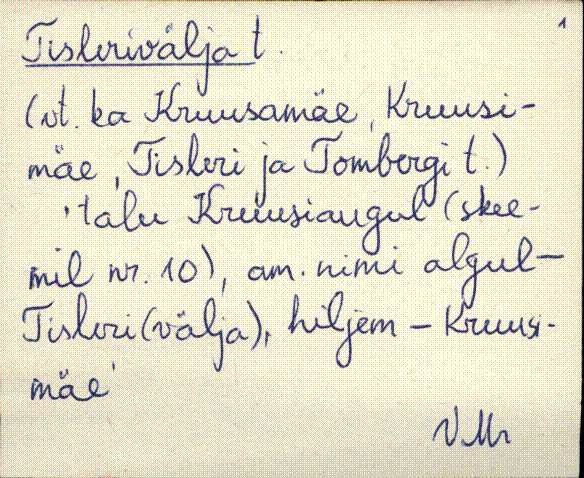 1
Tislerivälja t.
(vt. ka Kruusamäe, Kruusi-
mäe, Tisleri ja Tombergi t.)
'talu Kruusiaugul (skee-
mil nr. 10), am. nimi algul–
Tisleri(välja), hiljem – Kruusi-
mäe'
VMr